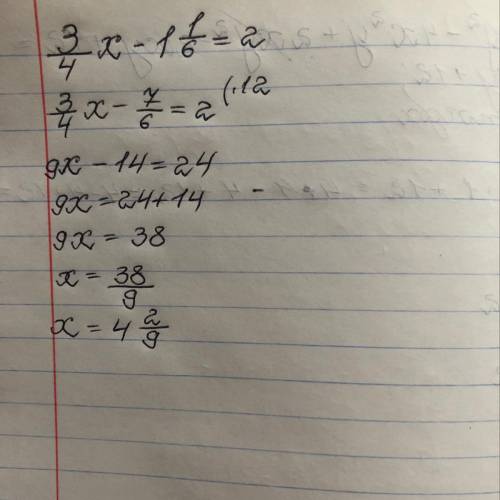 3/4 x - 1 1/6 = 2
3/4 x - 7/6 = 2 (.12
9x - 14 = 24
9x = 24 + 14
9x = 38
x = 38/9
x = 4 2/9